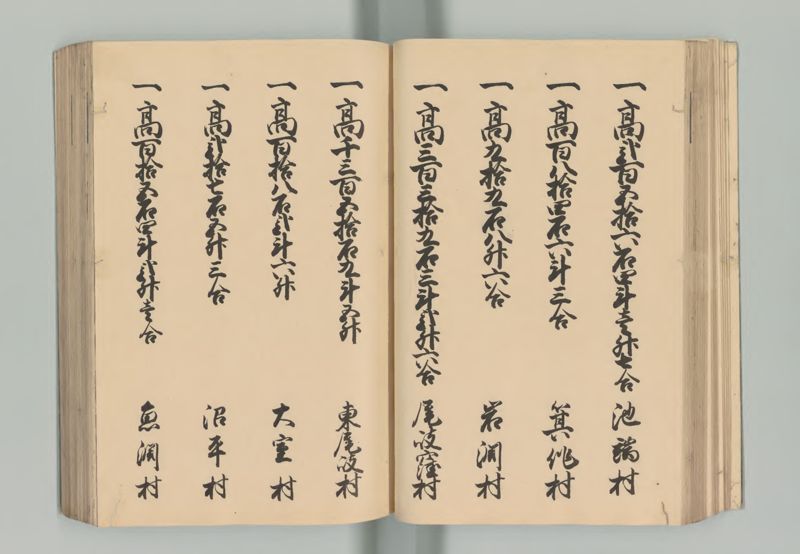 一高弐百五拾六石四斗壱升七合 池端村
一高百八拾四石六斗三合 箕作村
一高九拾九石八升六合 岩渕村
一高三百三拾九石三斗弐升六合 尾岐窪村
一高千三百五拾石九斗五升 東尾岐村
一高百拾八石弐斗六升 大室村
一高弐拾七石五升三合 沼平村
一高百拾五石四斗弐升壱合 魚渕村